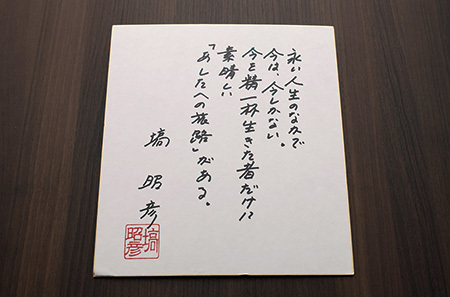 永い人生のなかで
今は、今しかない。
今を精一杯生きた者だけに
素晴しい
「あしたへの旅路」がある。
塙昭彦
塙昭彦